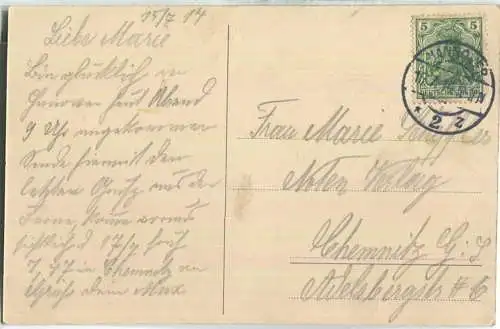 15/7 14
Liebe Marie
Bin glücklich in
Hanover heut Abend
9 Uhr angekommen
Sende hiermit den
letzten Gruß aus der
Ferne, komme voraus
sichtlich d 17/7 früh
7,47 in Chemnitz an
Grüße dein Max
5 5
HANNOVER
DEUTSCHES REICH
* 2 z
Frau Marie
Noten Verlag
Chemnitz G. S.
Adelsbergstr # 6